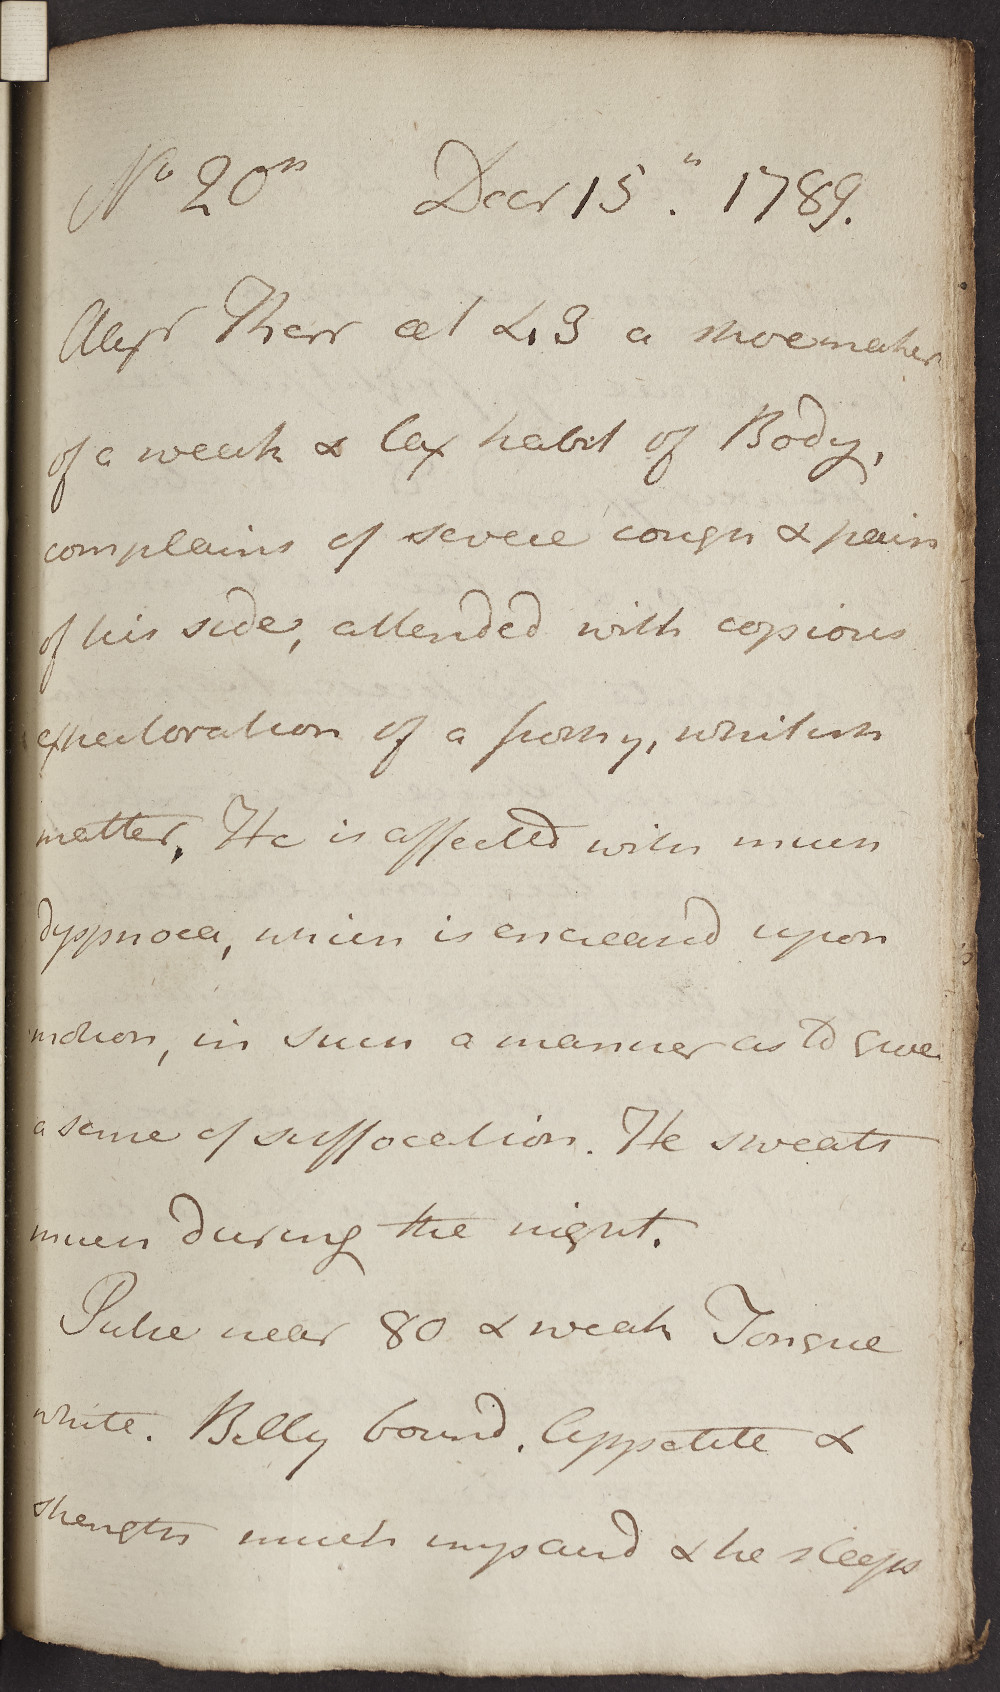 No 20th Decr 15th. 1789.
Alexr Therr aet 43 a shoemaker
of a weak & lax habit of Body,
complains of severe cough & pain
of his side, attended with copious
expectoration of a frothy, whitish
matter. He is affected with much
dyspnoea, which is encreased upon
motion, in such a manner as to give
a sense of suffocation. He sweats
much during the night.
Pulse near 80 & weak Tongue
white. Belly bound. Appetite &
strength much impaired & he sleeps